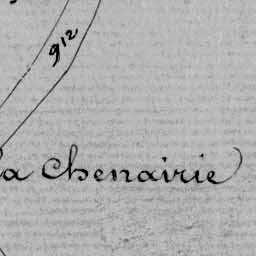 912
la Chenairie